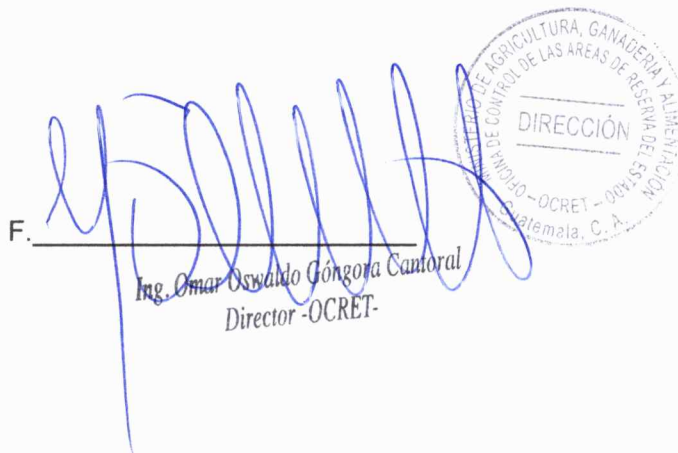 MINISTERIO DE AGRICULTURA, GANADERIA Y ALIMENTACIÓN
OFICINA DE CONTROL DE LAS AREAS DE RESERVA DEL ESTADO
DIRECCIÓN
-OCRET-
Guatemala, C. A.
F.
Ing. Omar Oswaldo Góngora Cantoral
Director -OCRET-